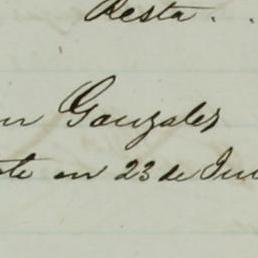 Resta . .
n Gonzalez
te en 23 de Jun